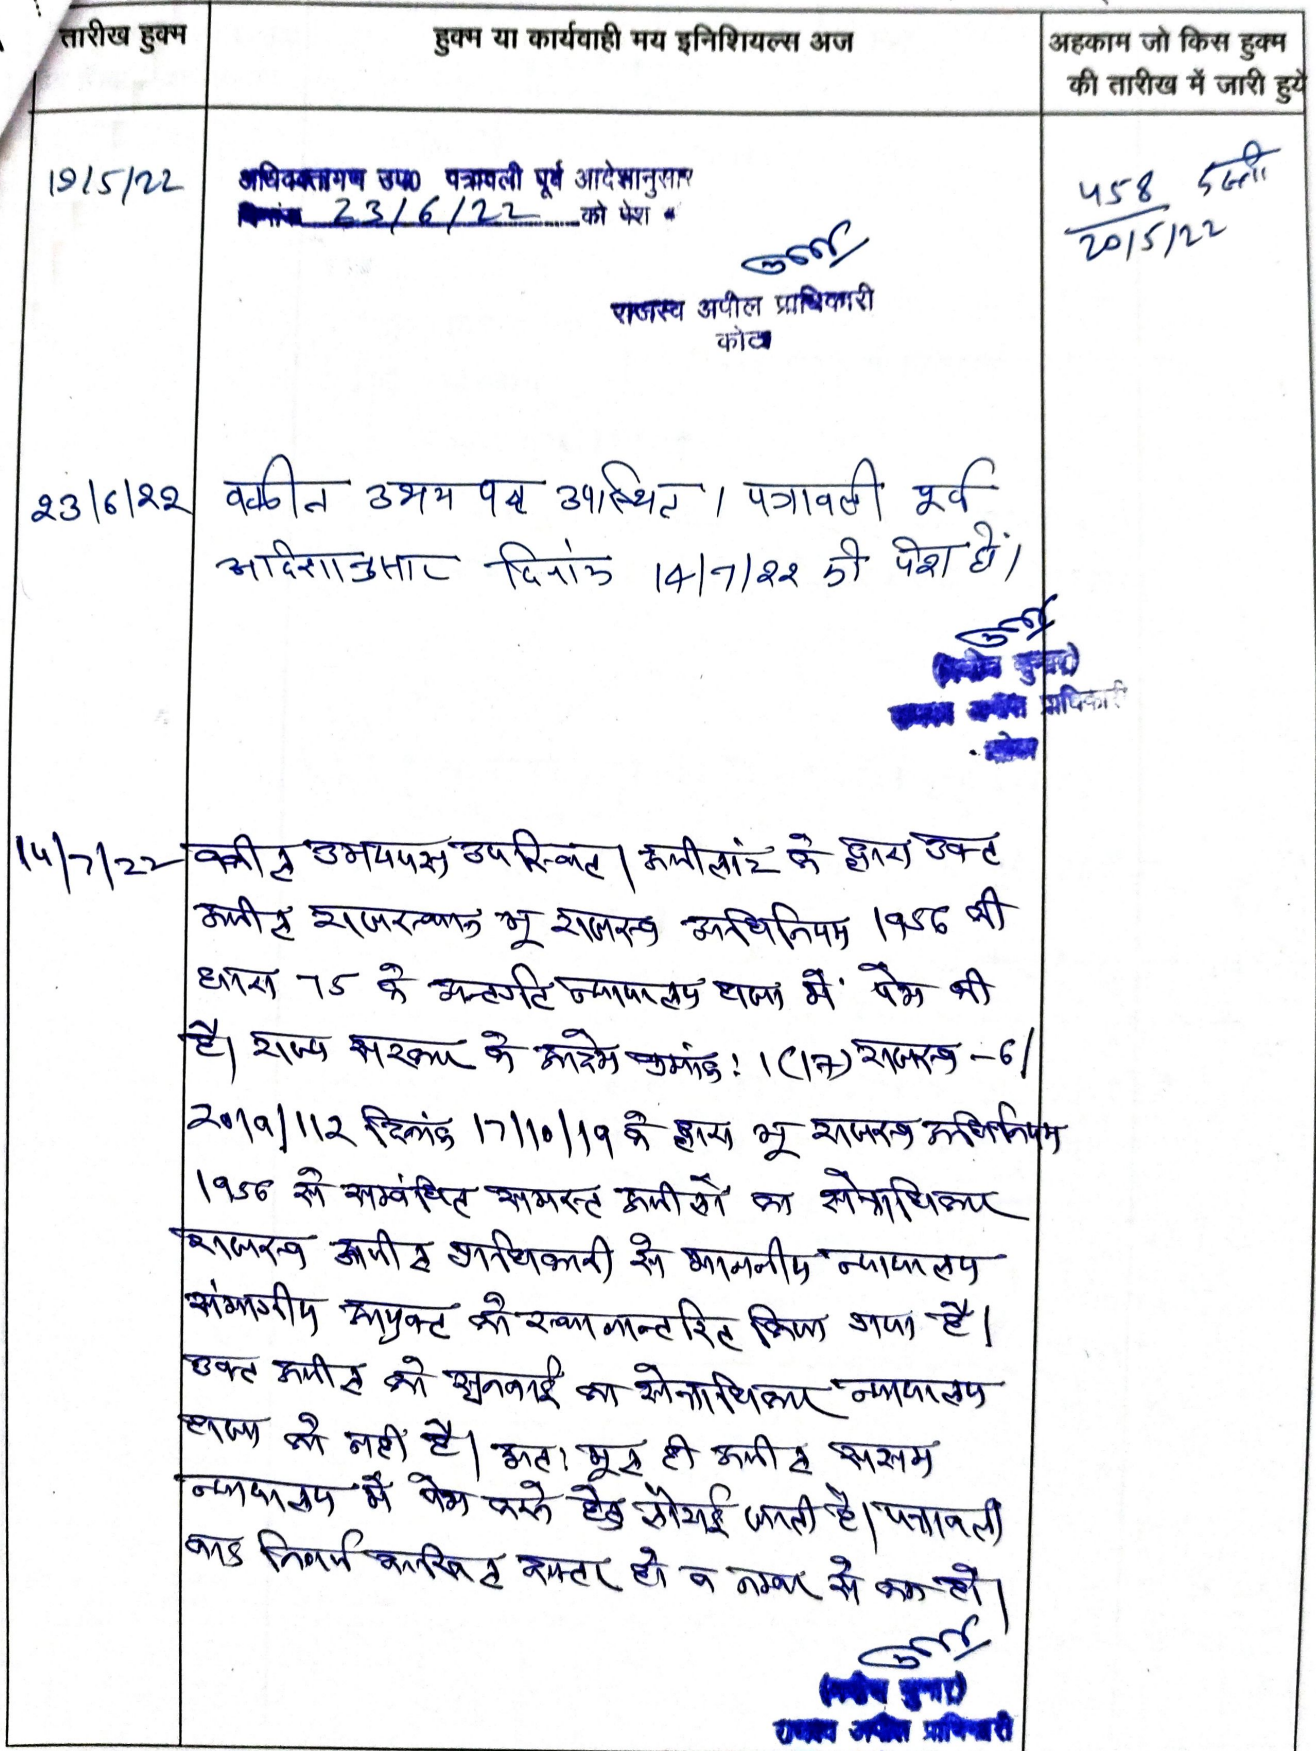 तारीख हुक्म
हुक्म या कार्यवाही मय इनिशियल्स अज
अहकाम जो किस हुक्म
की तारीख में जारी हुये
19/5/22
अधिवक्तागण उप० पत्रावली पूर्व आदेशानुसार
दिनांक 23/6/22 को पेश
458
20/5/22
राजस्व अपील प्राधिकारी
कोटा
23/6/22 वकील उभय पक्ष उपस्थित । पत्रावली पूर्व
आदेशानुसार दिनांक 14/7/22 को पेश हो।
राजस्व अपील प्राधिकारी
कोटा
14/7/22 वकील उभयपक्ष उपस्थित । अपीलांट के द्वारा उक्त
अपील राजस्थान भू राजस्व अधिनियम 1956 की
धारा 75 के अन्तर्गत न्यायालय हाजा में पेश की
है। राज्य सरकार के आदेश क्रमांक: 1(17) राजस्व-6/
2019/112 दिनांक 17/10/19 के द्वारा भू राजस्व अधिनियम
1956 से सम्बंधित समस्त अपीलों का क्षेत्राधिकार
राजस्व अपील प्राधिकारी से माननीय न्यायालय
संभागीय आयुक्त को स्थानान्तरित किया गया है।
उक्त अपील को सुनवाई का क्षेत्राधिकार न्यायालय
हाजा को नहीं है। अतः मूल ही अपील सक्षम
न्यायालय में पेश करने हेतु लौटाई जाती है। पत्रावली
बाद निर्णय दाखिल दफ्तर हो व नम्बर से कम हो।
राजस्व अपील प्राधिकारी